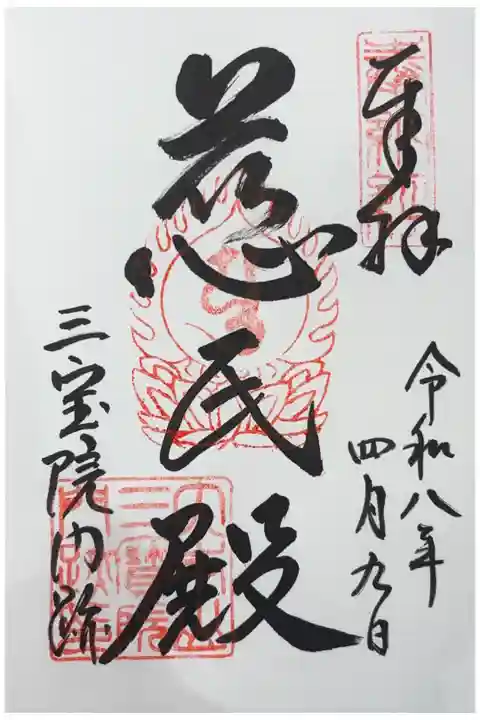 奉拝
令和八年
四月九日
慈氏殿
三宝院门跡